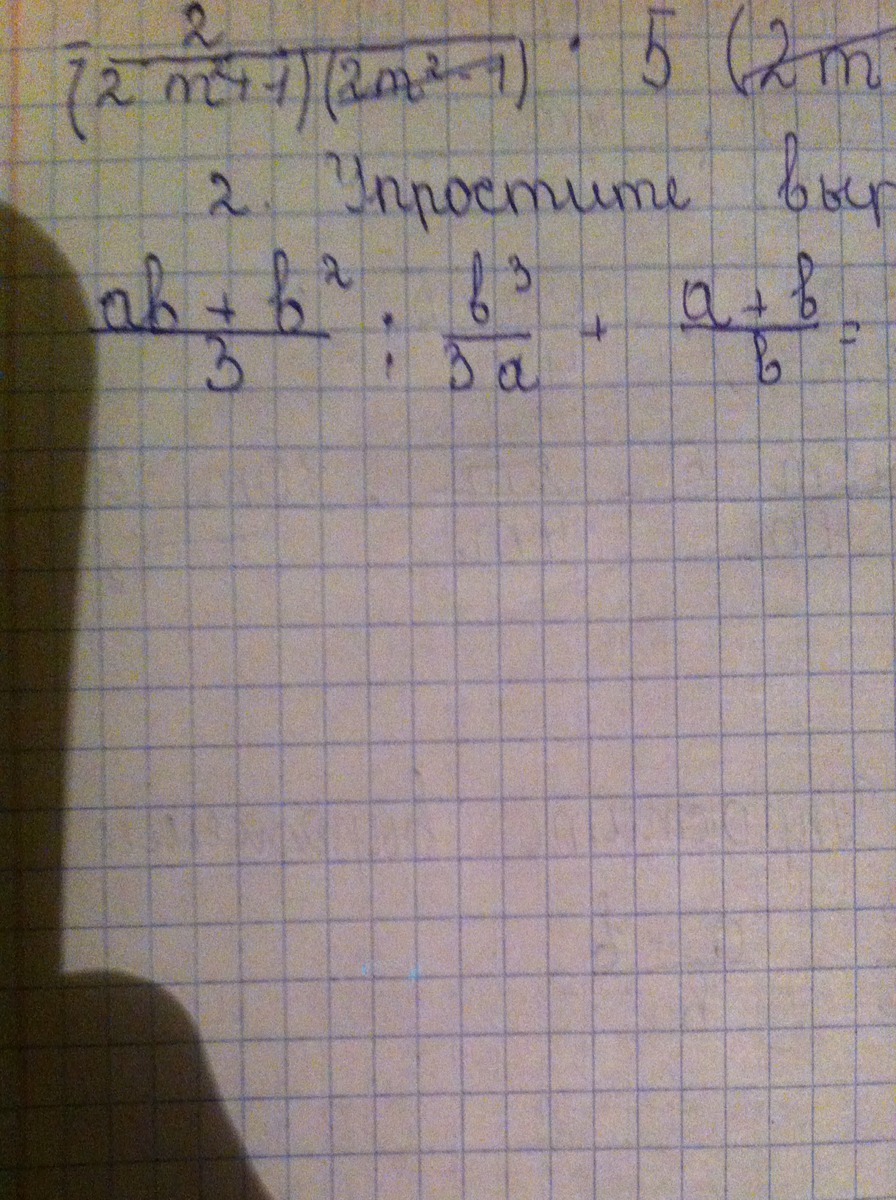 2
(2m²+1)(2m²-1) · 5 (2m
2. Упростите выр
ab + b² / 3 : b³ / 3a + a + b / b =